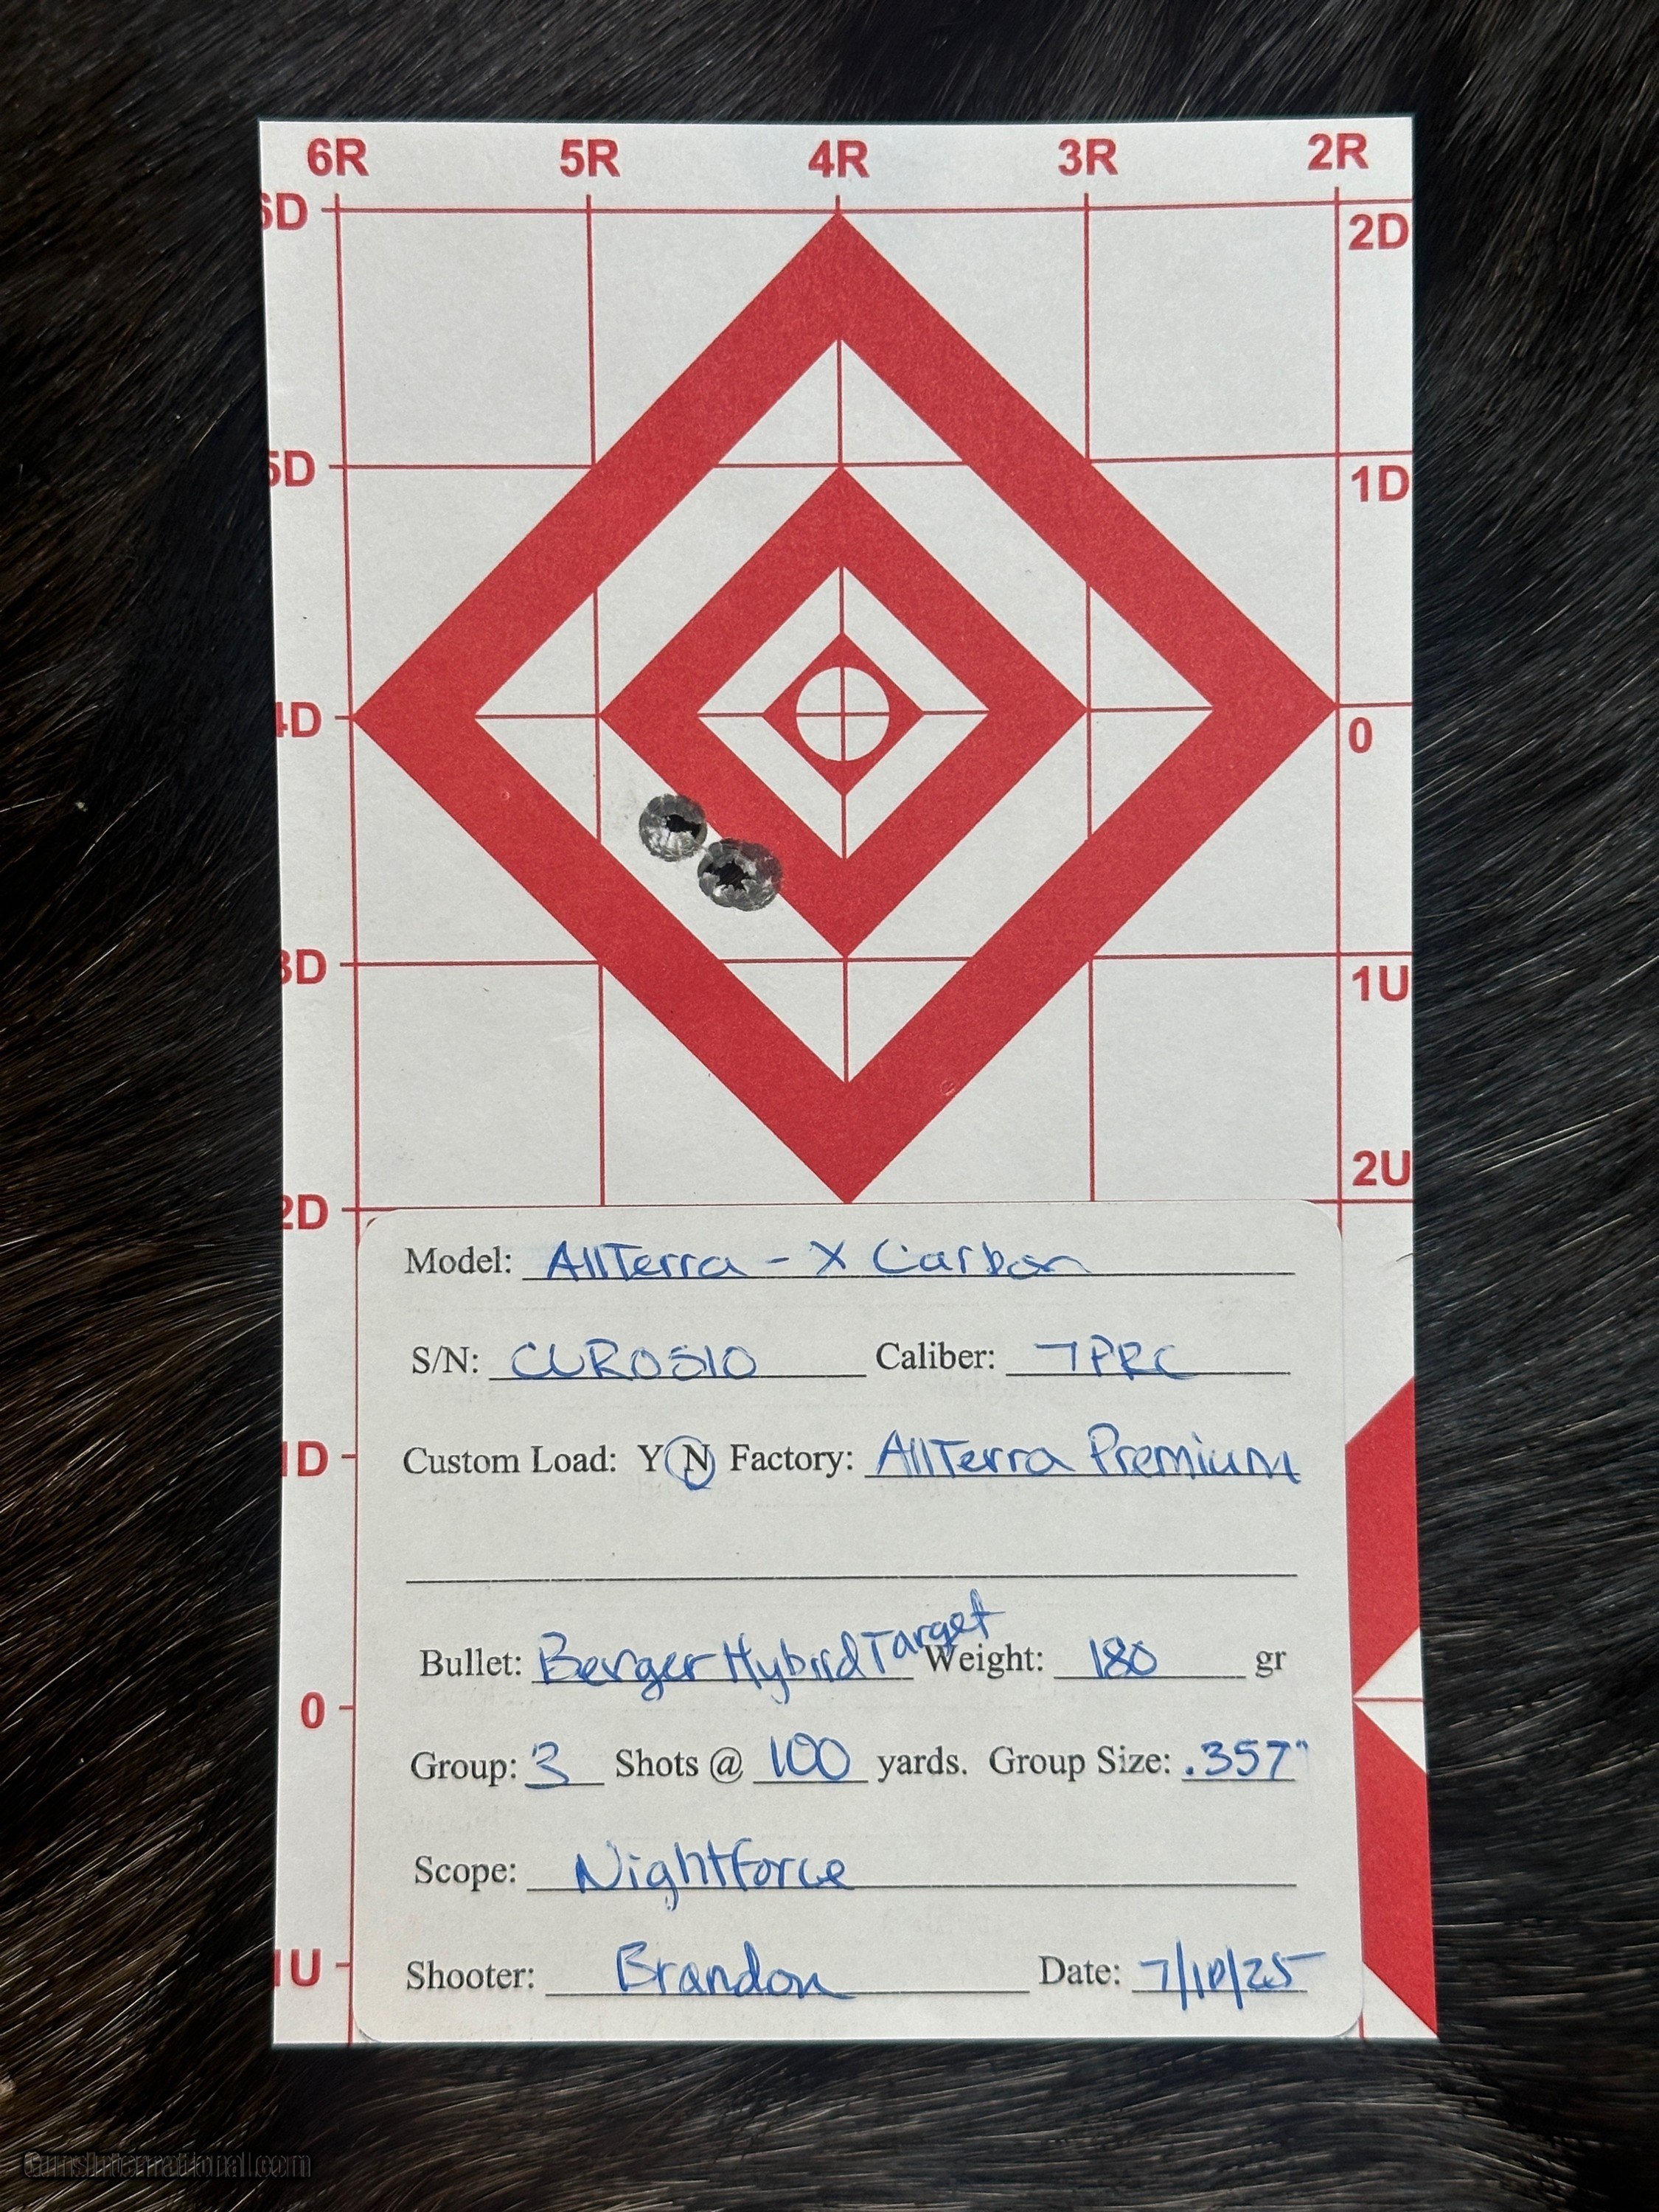 6R 5R 4R 3R 2R
6D 2D
5D 1D
4D 0
3D 1U
2D 2U
Model: AllTerra - X Carbon
S/N: CUR0510 Caliber: 7PRC
1D Custom Load: Y N Factory: AllTerra Premium
Bullet: Berger Hybrid Target Weight: 180 gr
0
Group: 3 Shots @ 100 yards. Group Size: .357"
Scope: Nightforce
1U Shooter: Brandon Date: 7/10/25
GunsInternational.com